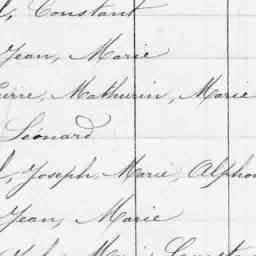 Constant
Jean, Marie
Mathurin, Marie
Léonard
Joseph, Marie, Alphon
Jean, Marie